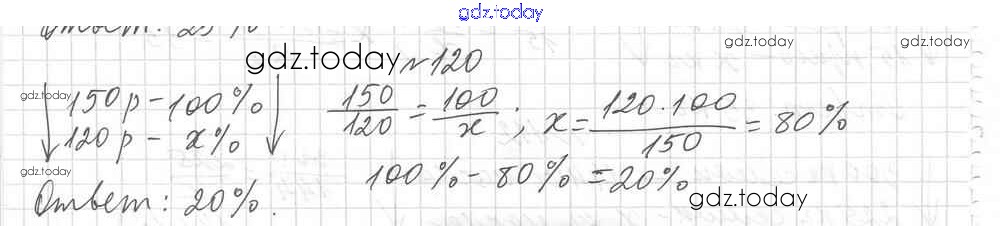 gdz.today
Ответ: 25%
gdz.today
gdz.today
gdz.today
№120
gdz.today
↓ 150р – 100% ↓
120р – x%
150/120 = 100/x ; x = 120·100/150 = 80%
100% – 80% = 20%
gdz.today
gdz.today
Ответ: 20%.